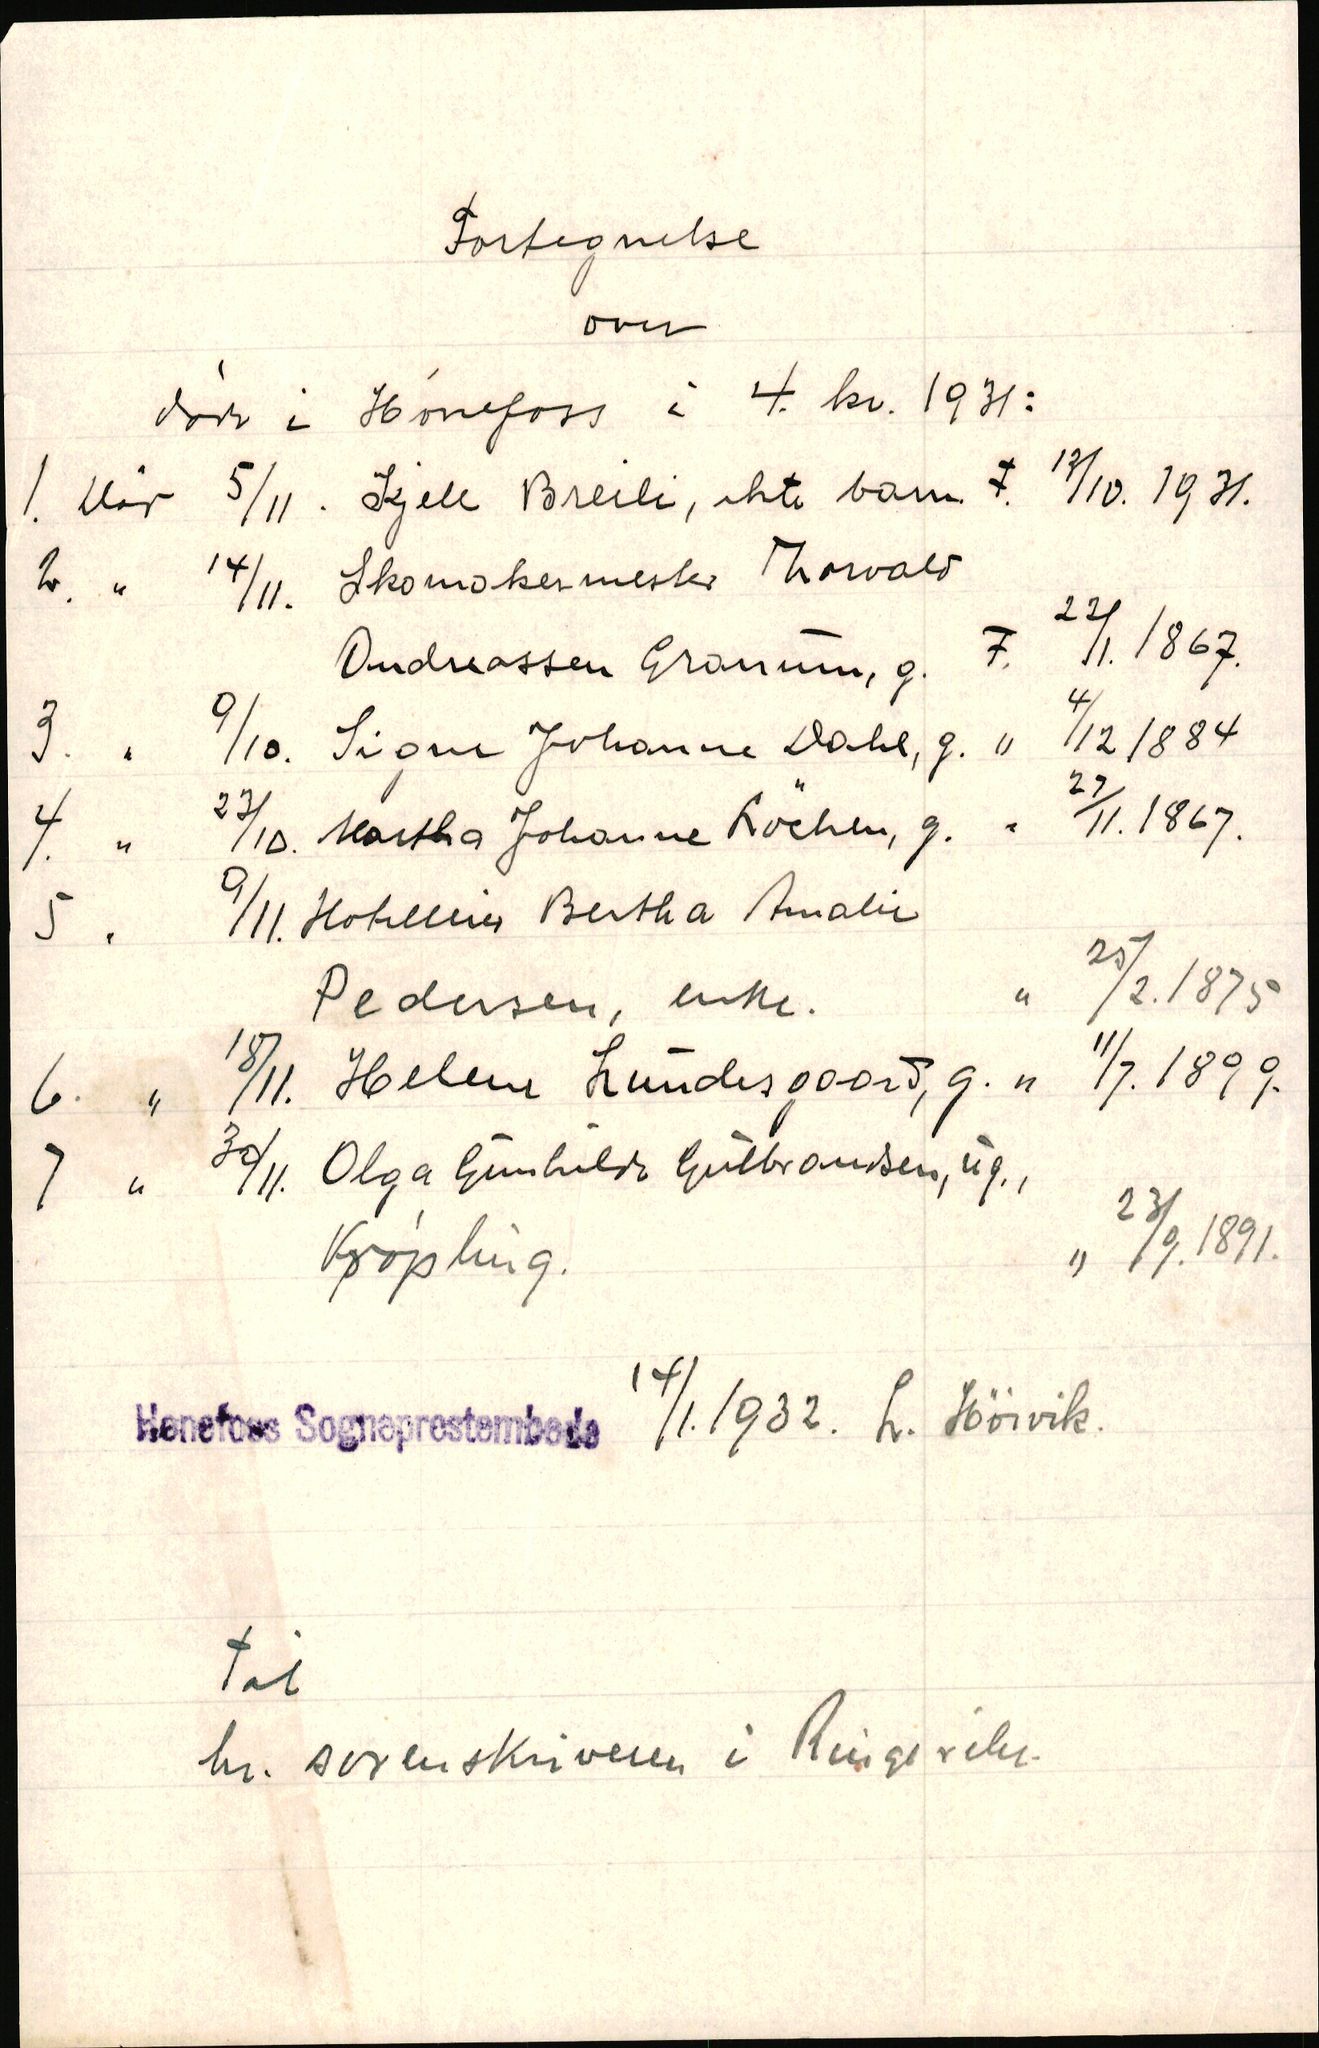 Fortegnelse
over
døde i Hønefoss i 4. kv. 1931:
1. Død 5/11. Kjell Breili, ekte barn F. 12/10. 1931.
2. " 14/11. Skomakermester Thorvald
Andreassen Granum, g. F. 22/1. 1867.
3. " 9/10. Signe Johanne Dahl, g. " 4/12 1884
4. " 23/10. Martha Johanne Köchen, g. " 27/11. 1867.
5 " 9/11. Hotelleier Bertha Amalie
Pedersen, enke. " 25/2. 1875
6. " 18/11. Helene Lundesgaard, g. " 11/7. 1899.
7 " 30/11. Olga Gunhilde Gulbrandsen, ug.,
Krøpling. " 23/9. 1891.
Hønefoss Sogneprestembede 14/1. 1932. L. Höivik.
Til
hr. sorenskriveren i Ringerike.